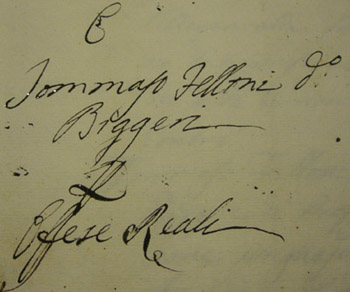 C
Tommaso Felloni d.º
Biggeri
Effese Reali